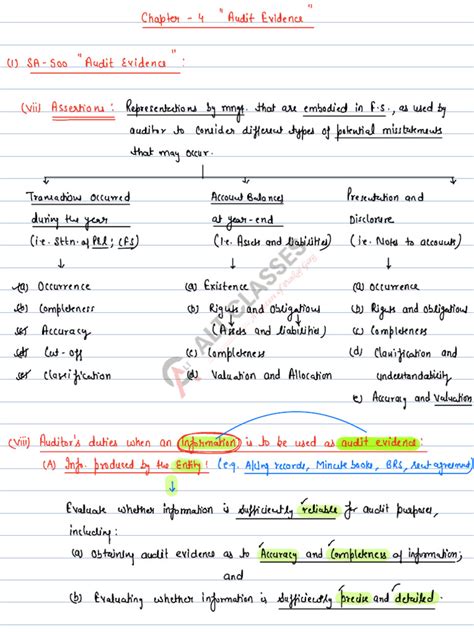 Chapter - 4 "Audit Evidence"
(1) SA-500 "Audit Evidence":
(vii) Assertions: Representations by mngt. that are embodied in F.S., as used by
auditor to consider different types of potential misstatements
that may occur.
Transactions Occurred
during the year
(i.e. Sttn. of P&L; CFS)
(a) Occurrence
(b) Completeness
(c) Accuracy
(d) Cut-off
(e) Classification
Account Balances
at year-end
(i.e. Assets and liabilities)
(a) Existence
(b) Rights and Obligations
(Assets and liabilities)
(c) Completeness
(d) Valuation and Allocation
Presentation and
Disclosure
(i.e. Notes to accounts)
(a) Occurrence
(b) Rights and Obligations
(c) Completeness
(d) Classification and
Understandability
(e) Accuracy and Valuation
ALT CLASSES
(viii) Auditor's duties when an information is to be used as audit evidence:
(A) Info. produced by the Entity: (e.g. A/cing records, Minute books, BRS, rent agreement)
Evaluate whether information is sufficiently reliable for audit purposes,
including:
(a) Obtaining audit evidence as to Accuracy and Completeness of information;
and
(b) Evaluating whether information is sufficiently precise and detailed.